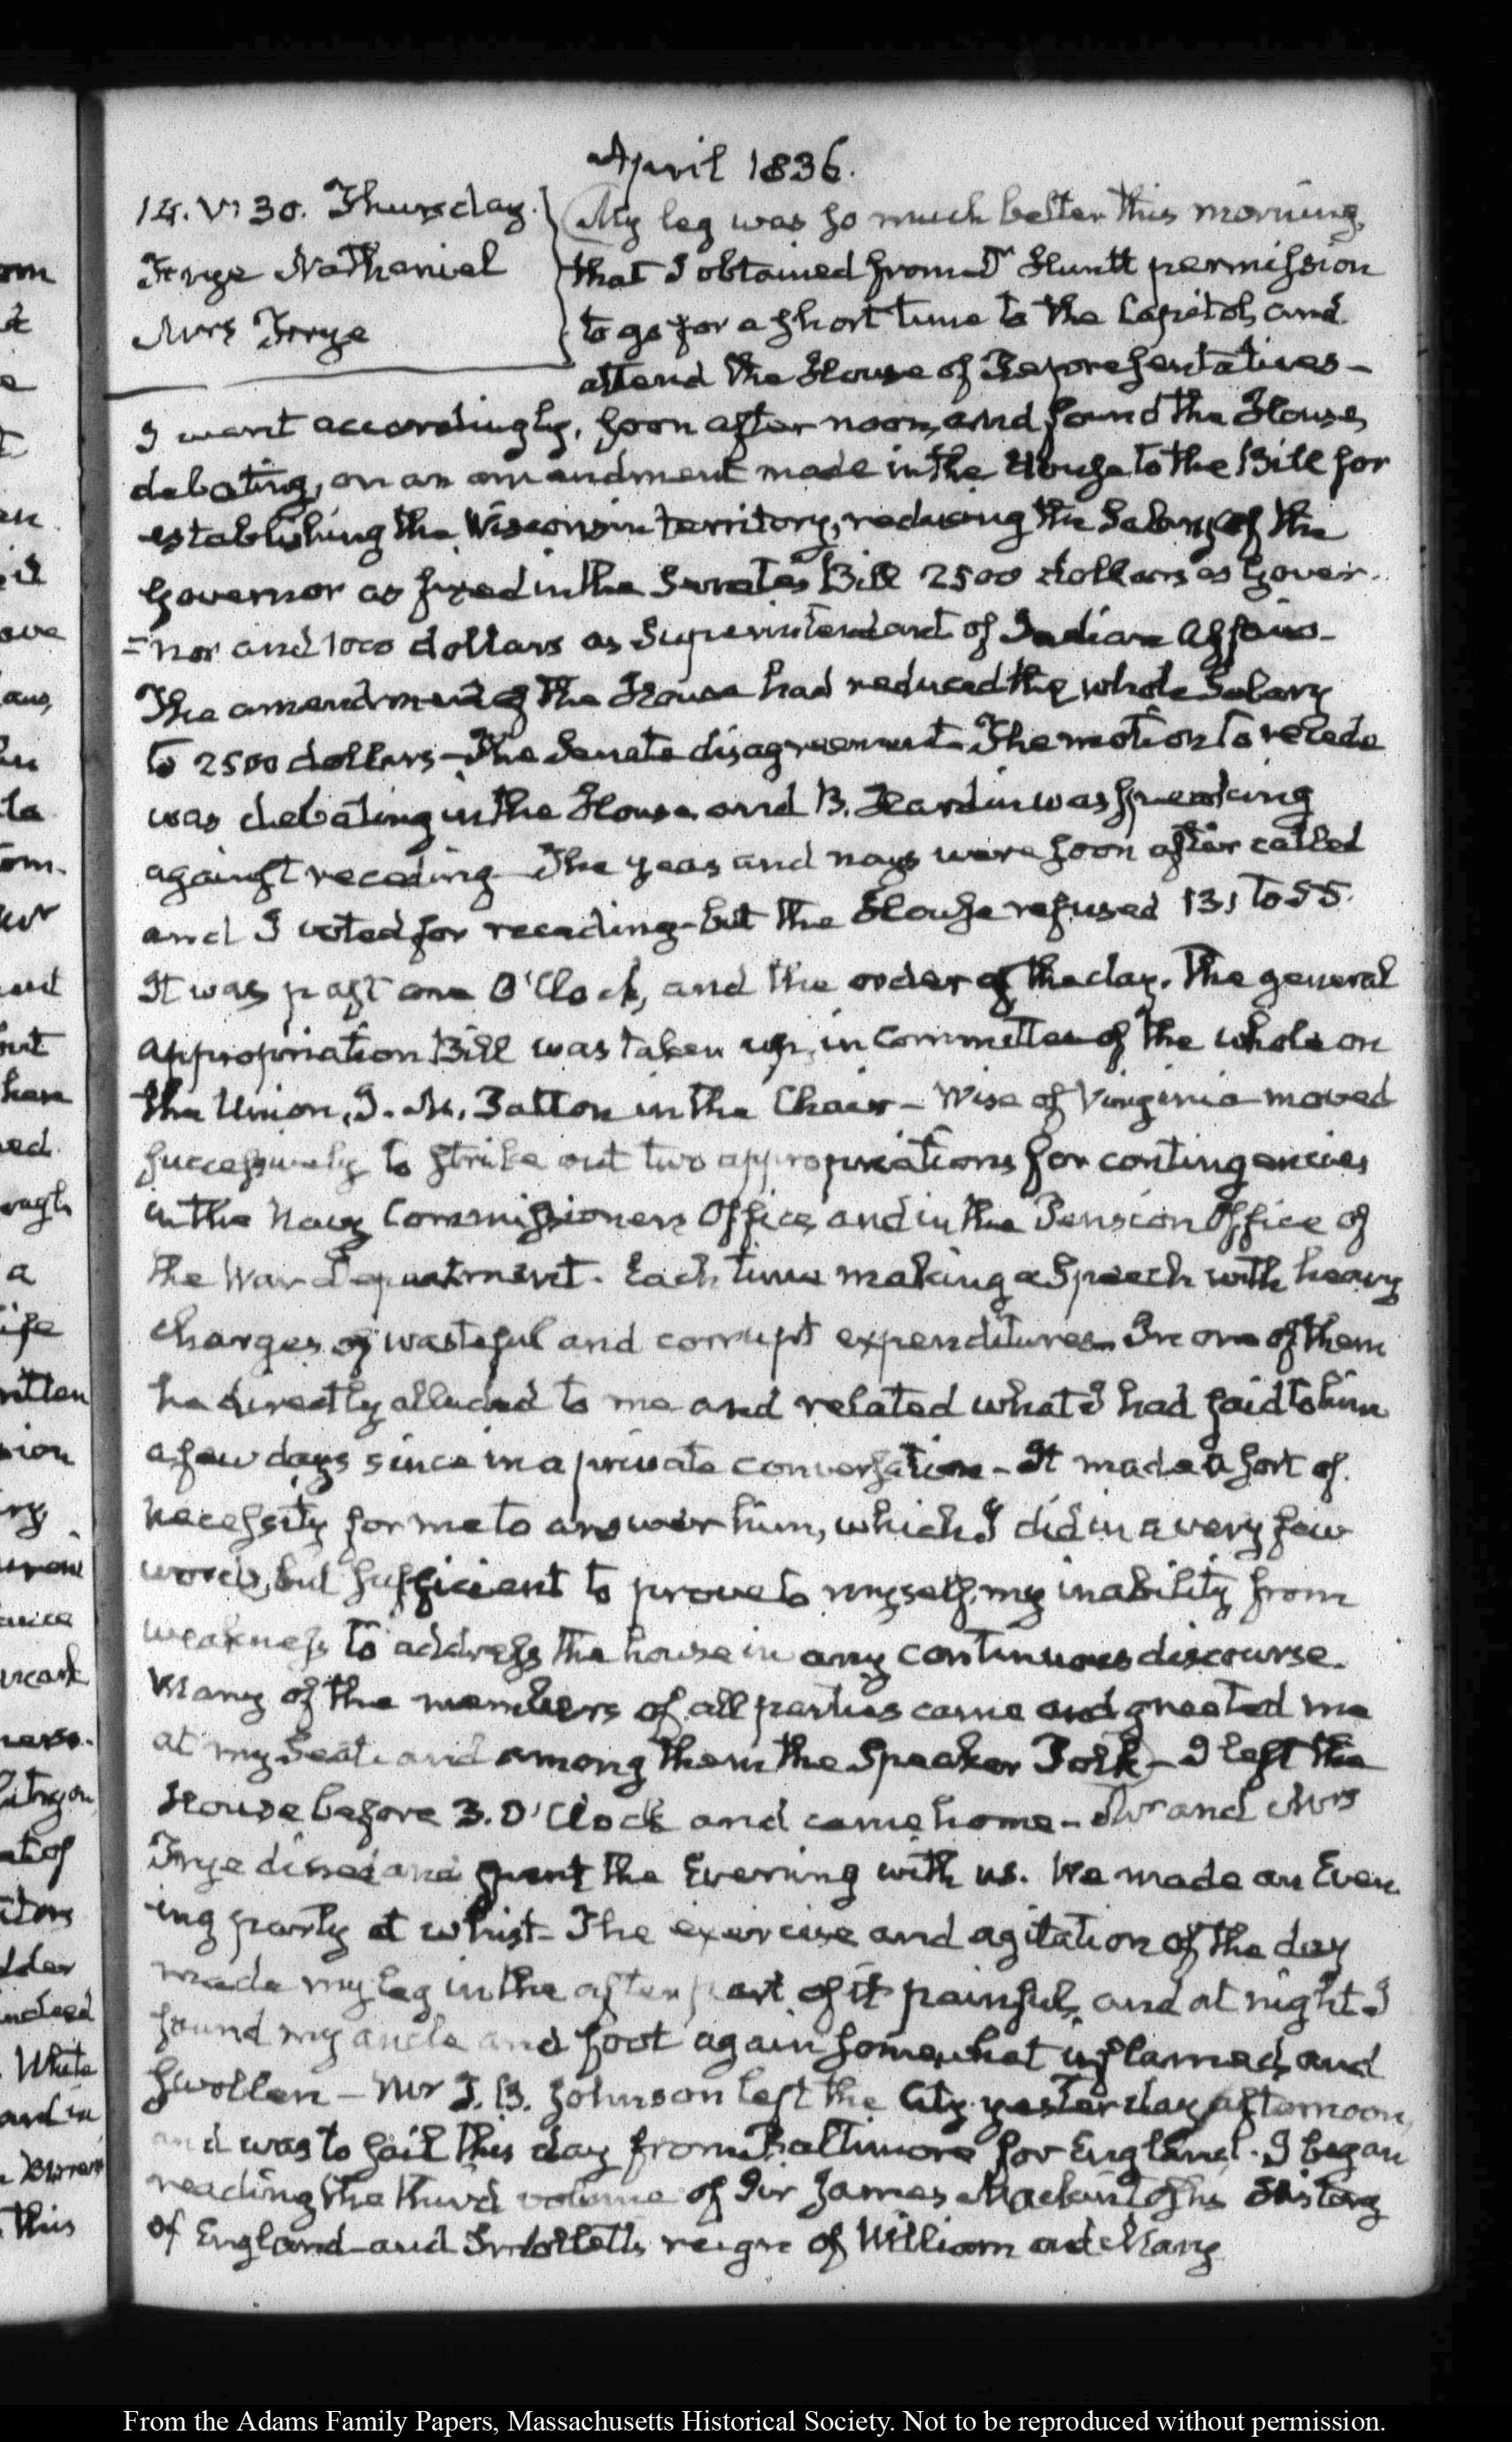 April 1836.
14. VI 30. Thursday.
Frye Nathaniel
Mrs Frye
My leg was so much better this morning,
that I obtained from Dr Huntt permission
to go for a short time to the Capitol, and
attend the House of Representatives—
I went accordingly, soon after noon, and found the House,
debating, on an amendment made in the House to the Bill for
establishing the Wisconsin territory, reducing the Salary of the
Governor as fixed in the Senate's Bill 2500 dollars as Gover-
=nor and 1000 dollars as Superintendant of Indian Affairs—
The amendment of the House had reduced the whole Salary
to 2500 dollars—The Senate disagreement—The motion to recede
was debating in the House and B. Hardin was speaking
against receding—The yeas and nays were soon after called
and I voted for receding—but the House refused 131 to 55.
It was past one O'Clock, and the order of the day. The general
appropriation Bill was taken up, in Committee of the whole on
the Union, J. M. Patton in the Chair—Wise of Virginia moved
successively to strike out two appropriations for contingencies
in the Navy Commissioners Office, and in the Pension Office of
the War Department. Each time making a Speech with heavy
charges of wasteful and corrupt expenditures—In one of them
he directly alluded to me and related what I had said to him
a few days since in a private conversation—It made a sort of
necessity for me to answer him, which I did in a very few
words, but sufficient to prove to myself, my inability from
weakness to address the house in any continuous discourse.
Many of the members of all parties came and greeted me
at my Seat, and among them the Speaker Polk—I left the
House before 3. O'Clock and came home—Mr and Mrs
Frye dined and spent the Evening with us. We made an Even
ing party at whist—The exercise and agitation of the day
made my leg in the after part of it painful, and at night I
found my ancle and foot again somewhat inflamed, and
swollen—Mr J. B. Johnson left the City yesterday afternoon,
and was to sail this day from Baltimore for England. I began
reading the third volume of Sir James Mackintosh's History
of England—and Smolletts reign of William and Mary
From the Adams Family Papers, Massachusetts Historical Society. Not to be reproduced without permission.